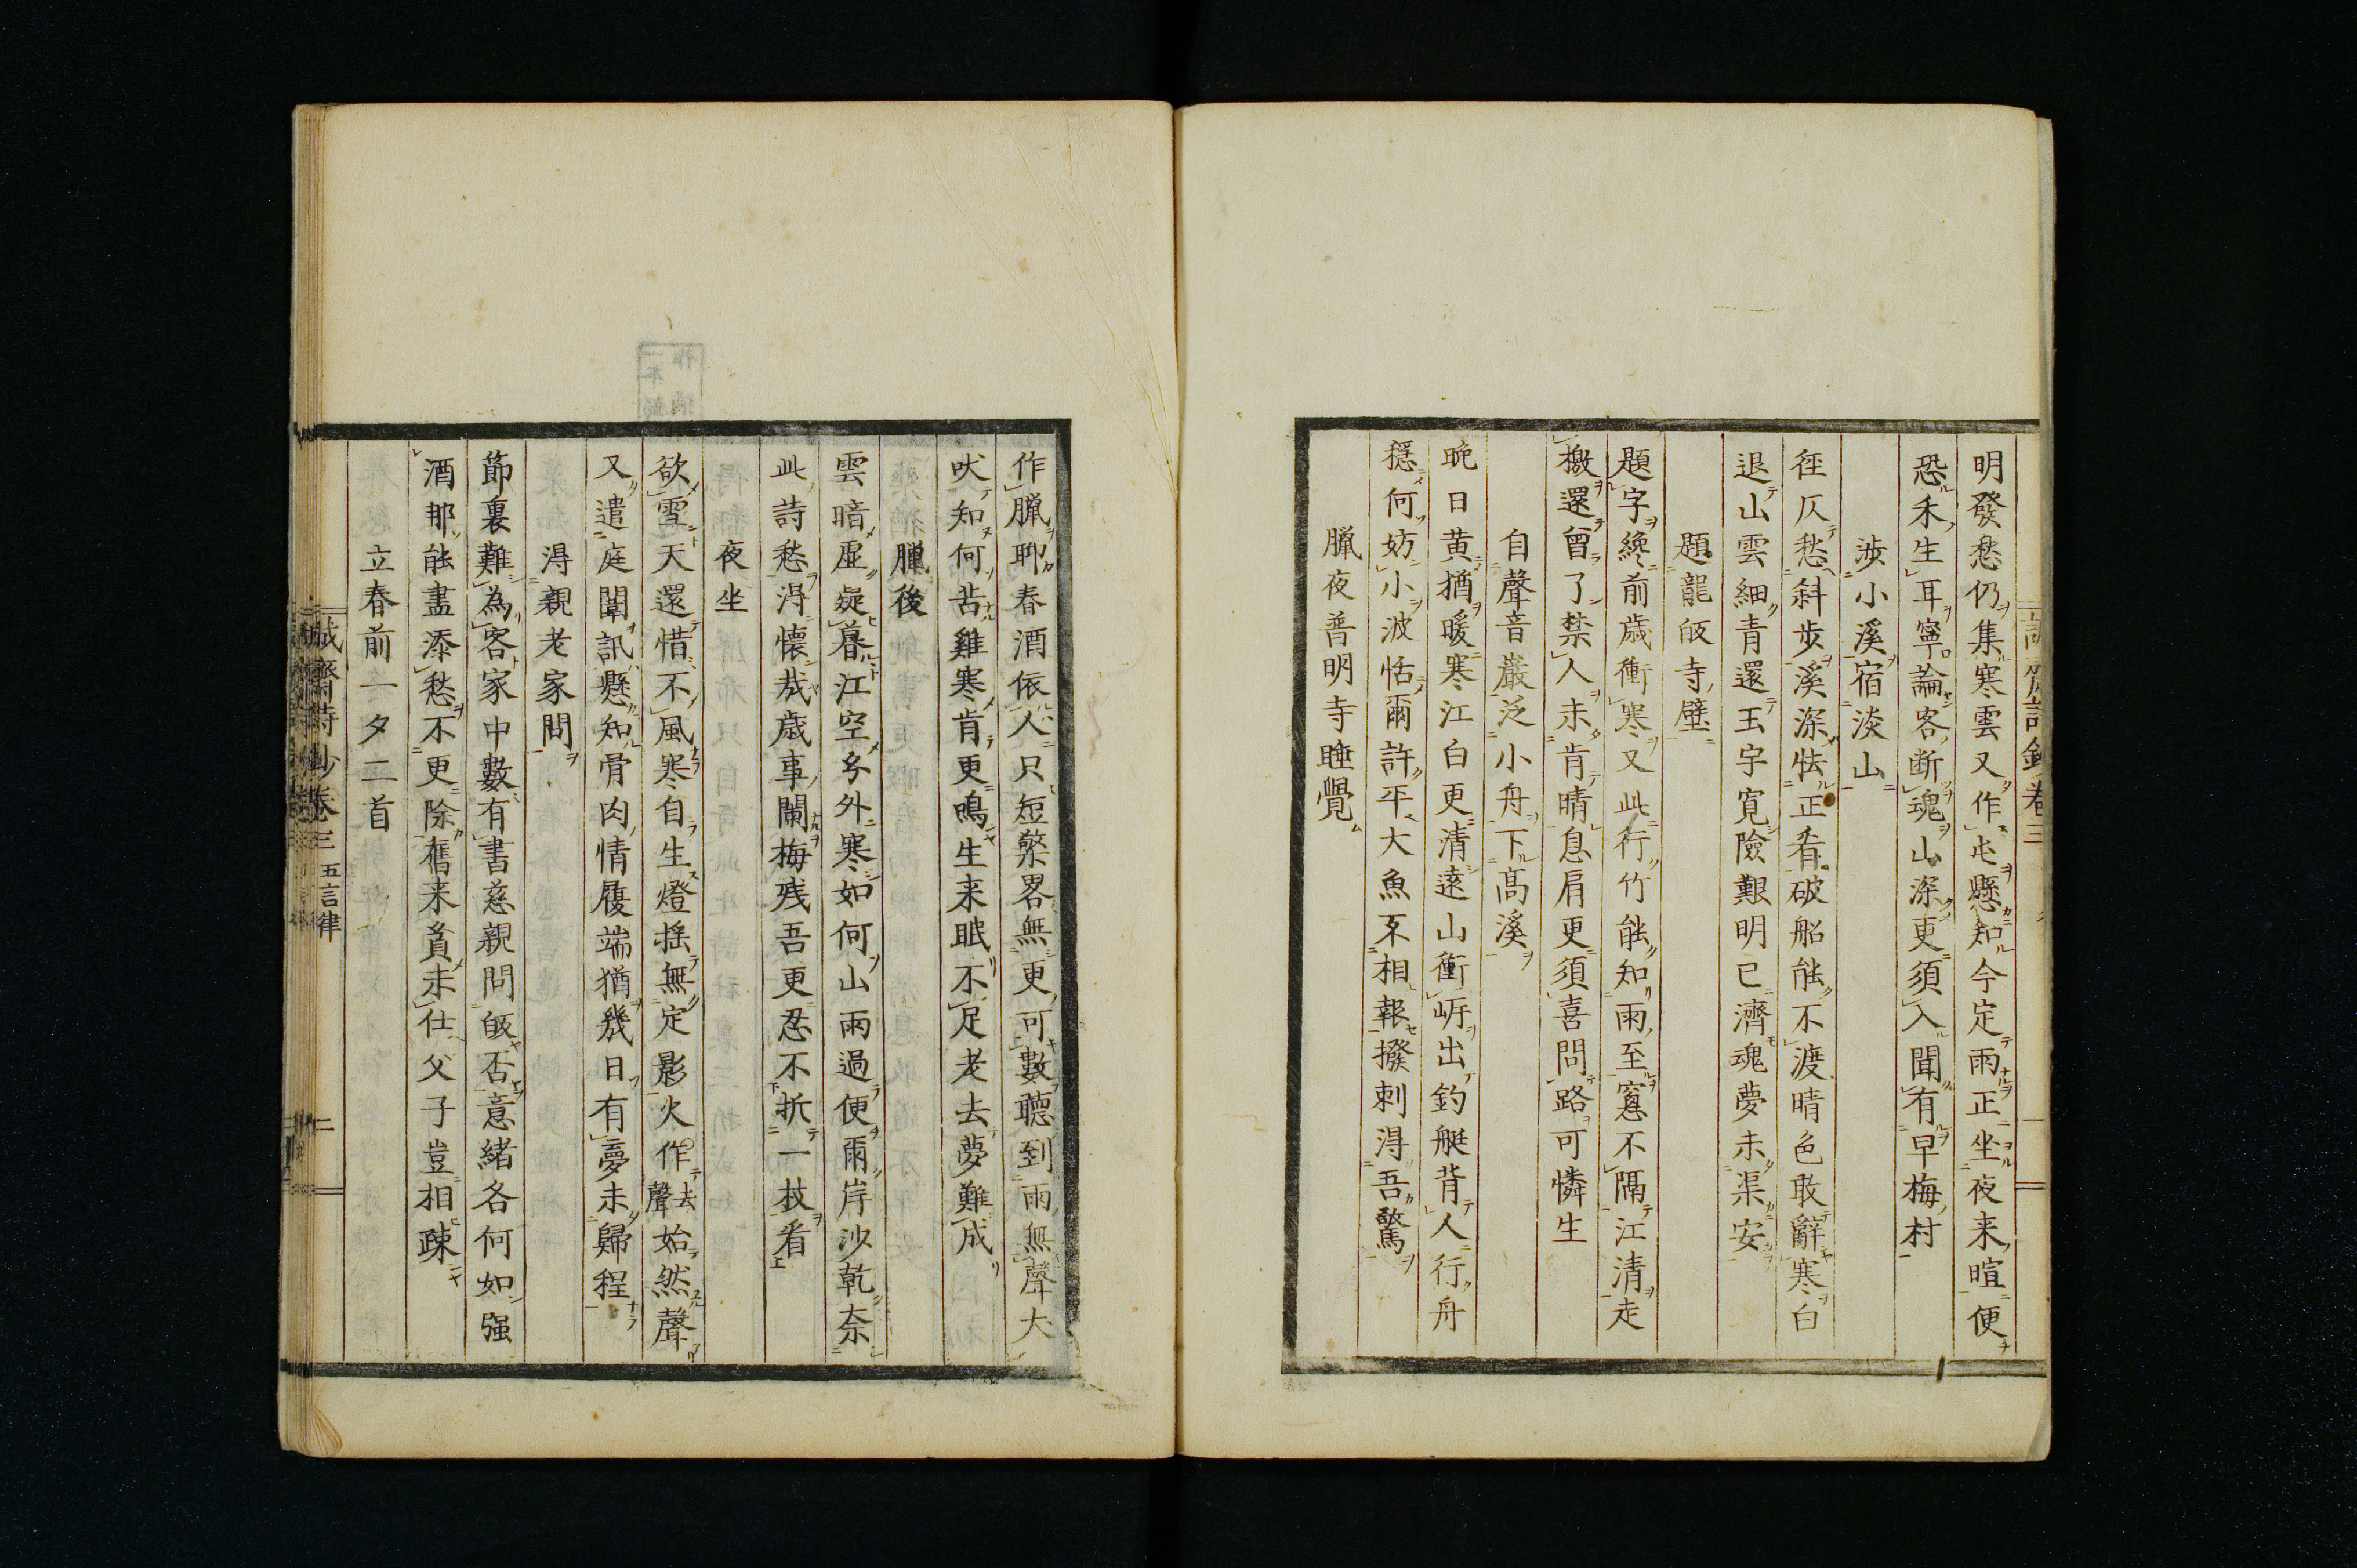 明發愁仍集寒雲又作屯懸知今定雨正坐夜来暄便
恐禾生耳寧論客断魂山深更須入聞有早梅村
渉小溪宿淡山
徑仄愁斜步溪深怯正看破船能不渡晴色敢辭寒白
退山雲細青還玉宇寬險艱明已濟魂夢未渠安
題龍皈寺壁
題字纔前歳衝寒又此行竹能知雨至窓不隔江清走
檄還曾了禁人未肯晴息肩更須喜問路可憐生
自聲音巖泛小舟下髙溪
晩日黄猶暖寒江白更清遠山衝岍出釣艇背人行舟
穩何妨小波恬爾許平大魚不相報撥剌淂吾驚
臘夜普明寺睡覺
作臘聊春酒依人只短檠畧無更可數聴到雨無聲犬
吠知何苦雞寒肯更鳴生来眠不足老去夢難成
臘後
雲暗虚疑暮江空分外寒如何山雨過便爾岸沙乾奈
此詩愁淂懐㦲歳事闌梅残吾更忍不折一枝看
夜坐
欲雪天還惜不風寒自生燈揺無定影火作去聲始然聲
又遣庭闈訊懸知骨肉情履端猶幾日有夢未歸程
淂親老家問
節裏難為客家中數有書慈親問皈否意緒各何如强
酒那能盡添愁不更除舊来貧未仕父子豈相踈
立春前一夕二首
誠齋詩鈔卷三 五言律 二